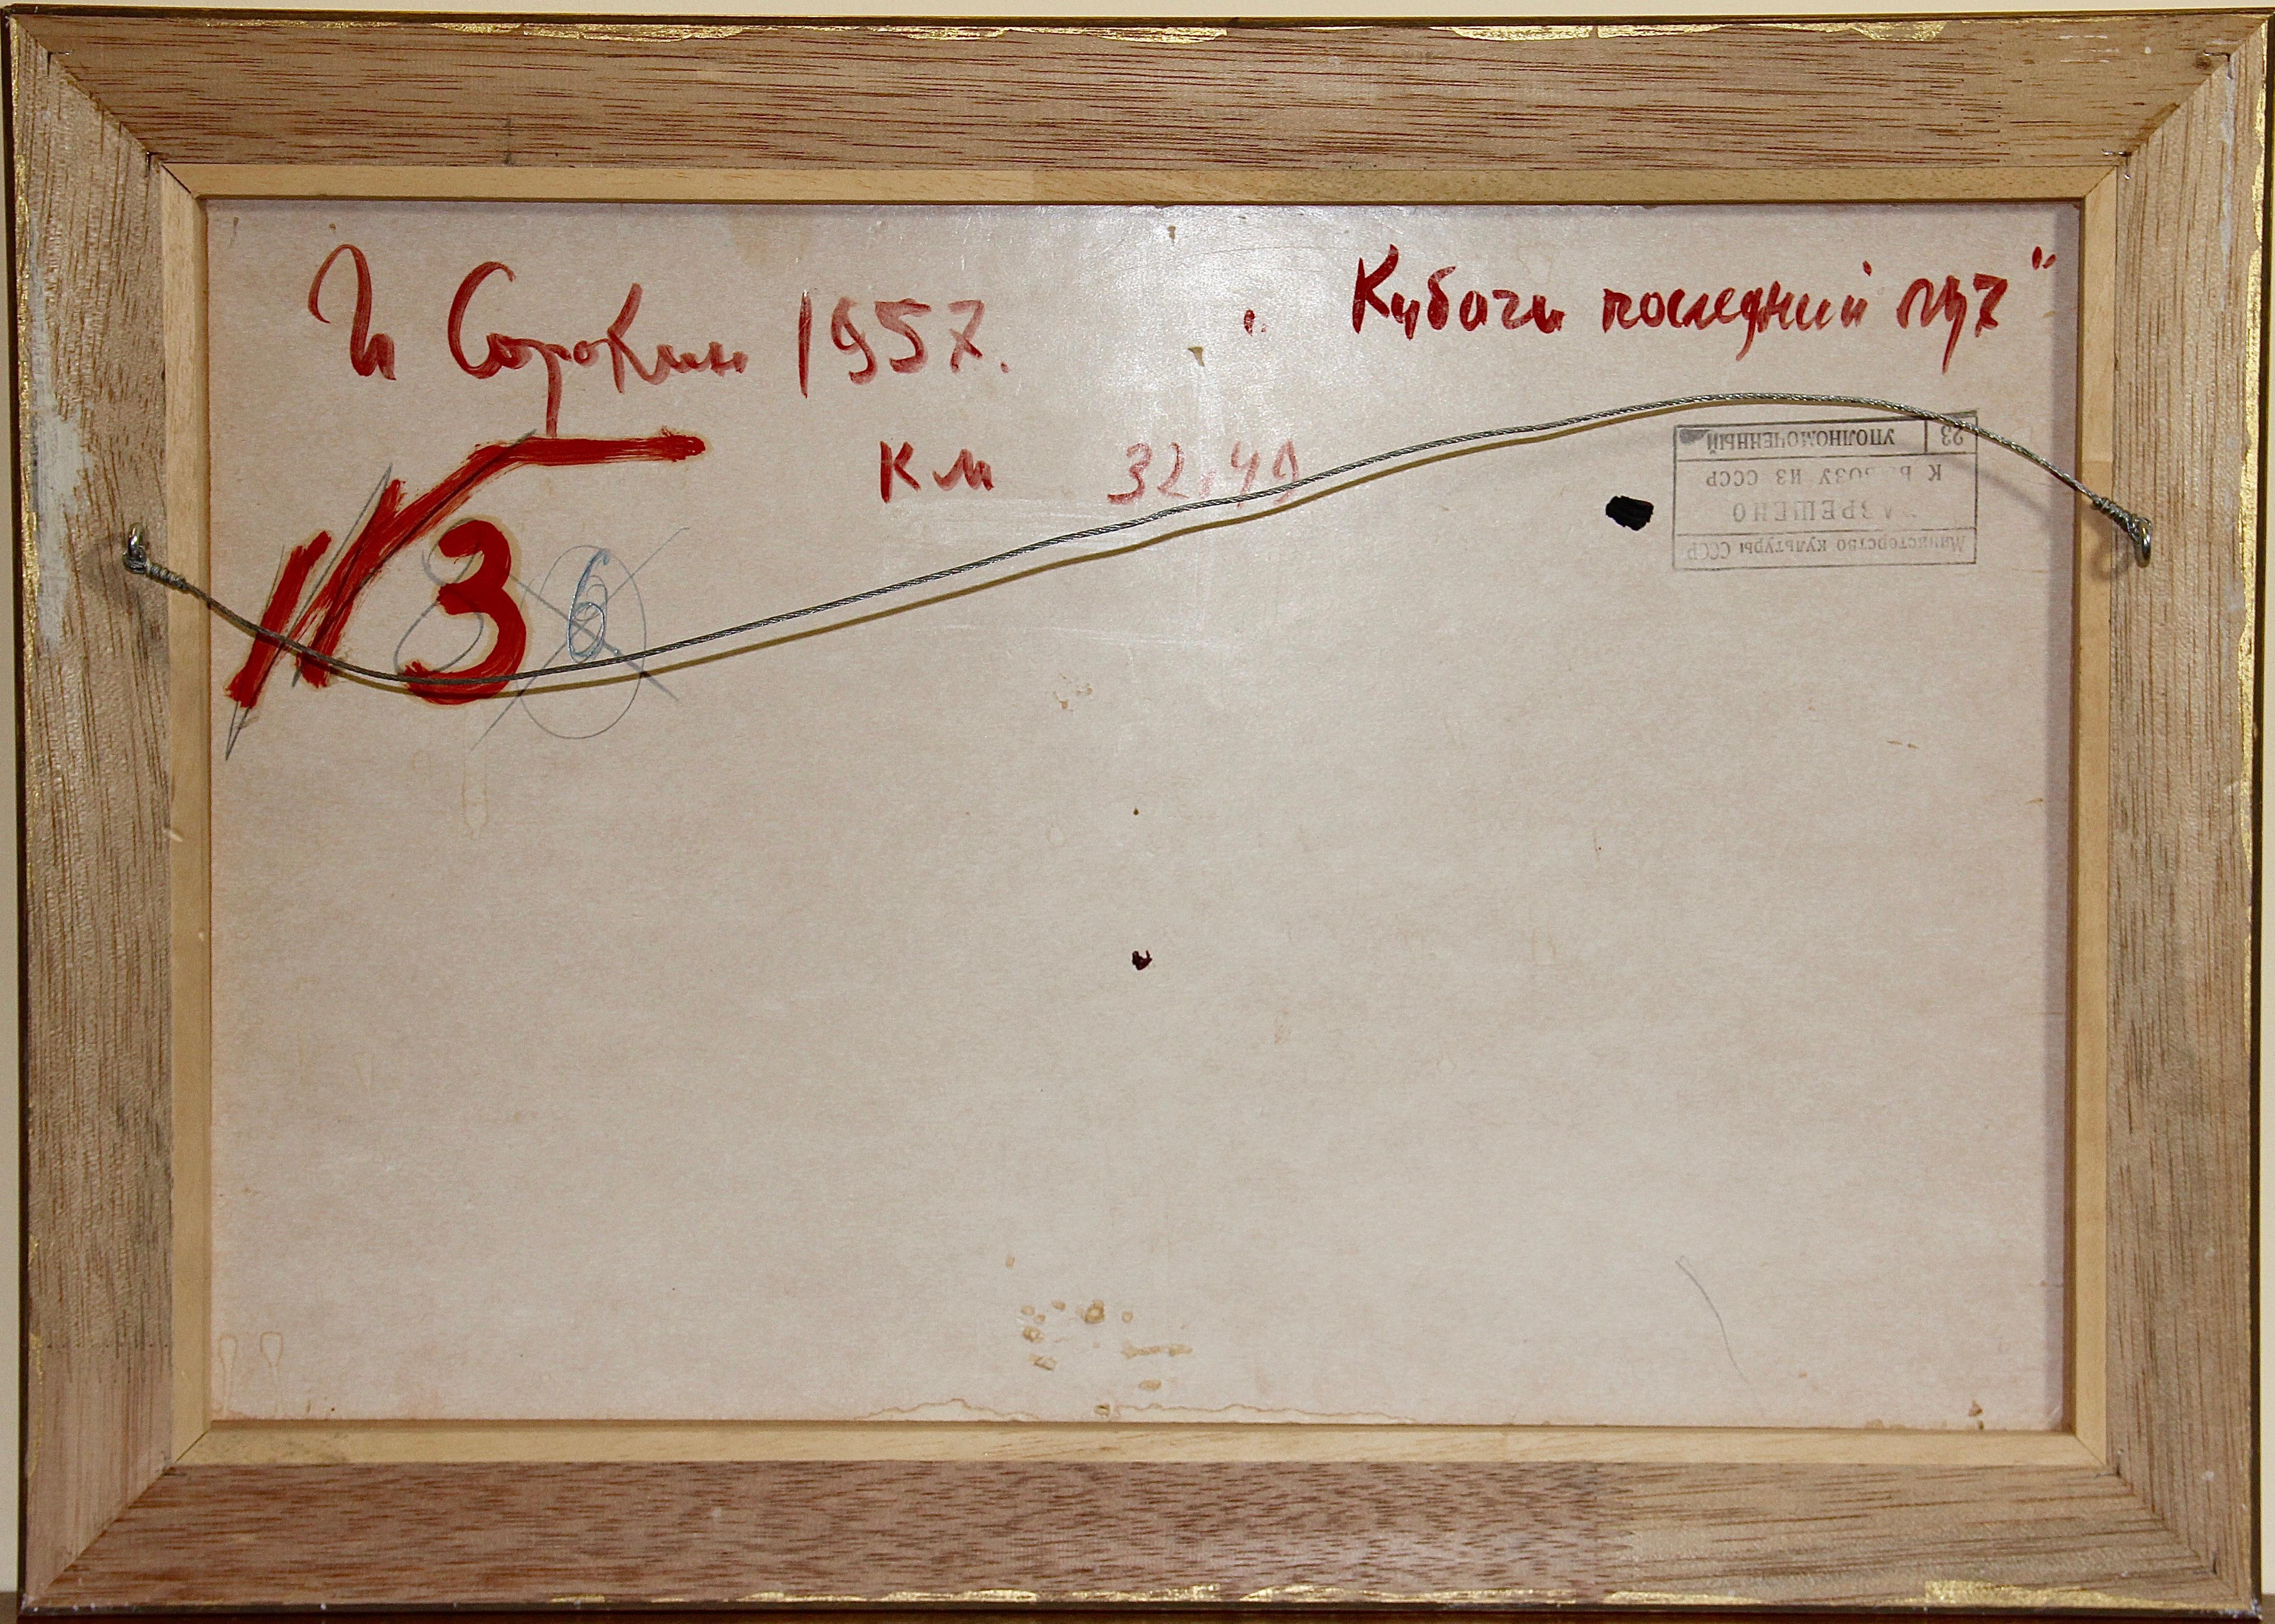 И Сорокин 1957.
„ Кубачи последний луч"
КМ 32.49
№ 3
8
6
Министерство культуры СССР
РАЗРЕШЕНО
К ВЫВОЗУ ИЗ СССР
23 УПОЛНОМОЧЕННЫЙ